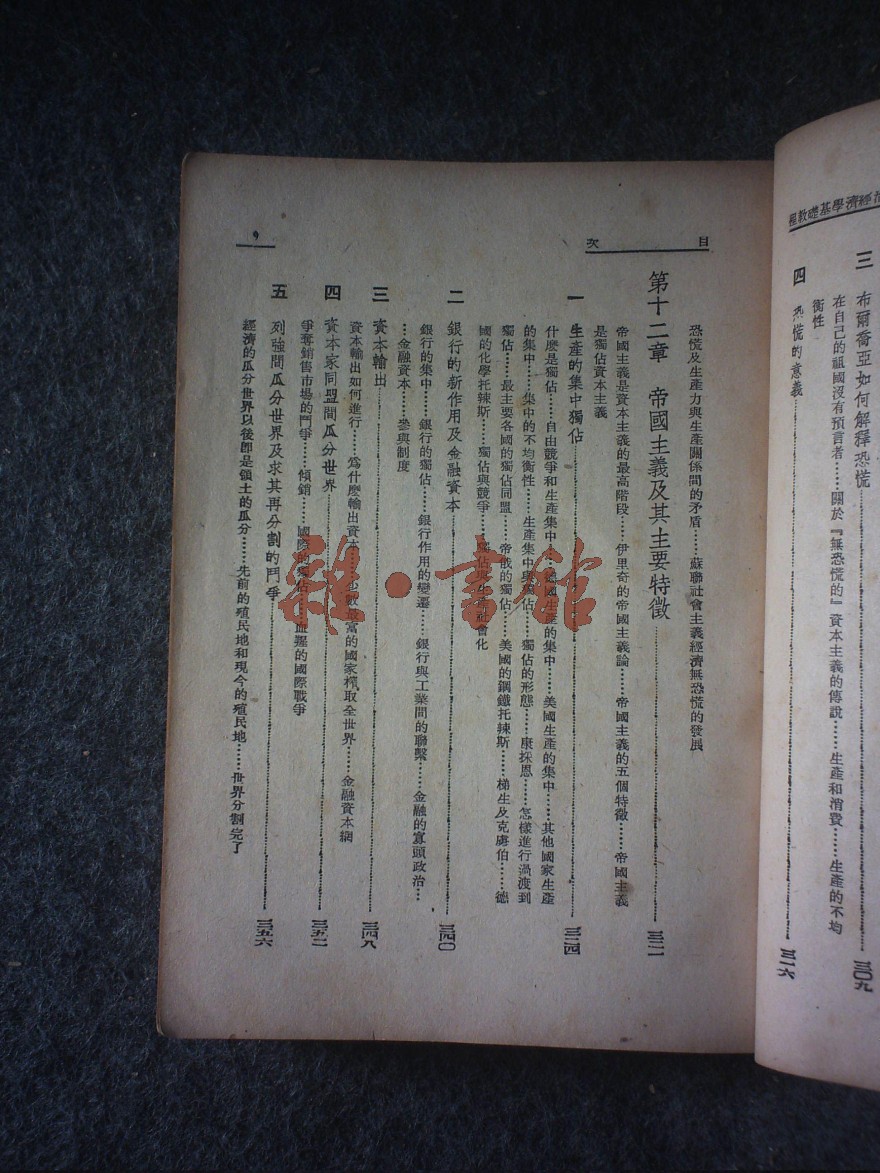 經濟學基礎教程
三 布爾喬亞如何解釋恐慌……三〇九
在自己的祖國沒有預言者……關於『無恐慌的』資本主義的傳說……生產和消費……生產的不均
衡性
四 恐慌的意義……三一六
目次
恐慌及生產力與生產關係間的矛盾……蘇聯社會主義經濟無恐慌的發展
第十二章 帝國主義及其主要特徵……三二一
帝國主義是資本主義的最高階段……伊里奇的帝國主義論……帝國主義的五個特徵……帝國主義
是獨佔資本主義
一 生產的集中獨佔……三二四
什麽是獨佔……自由競爭和生產集中……德國生產的集中……美國生產的集中……其他國家生產
的集中……集中的不均衡性……生產集中與獨佔……獨佔的形態……康採恩……怎樣進行渦渡到
獨佔……最主要各國的獨佔同盟……帝俄的獨佔……美國的鋼鐵托辣斯……梯生及克虜伯……德
國的化學托辣斯……獨佔與競爭……獨佔與生產社會化
二 銀行的新作用及金融資本……三四〇
銀行的集中……銀行的獨佔……銀行作用的變遷……銀行與工業間的聯繫……金融的寡頭政治…
…金融資本……參與制度
三 資本輸出……三四八
資本輸出如何進行……爲什麽輸出資本……少數最富的國家榨取全世界……金融資本網
四 資本家同盟間瓜分世界……三五二
爭奪銷售市場的鬥爭……傾銷……國際的獨佔……血腥的國際戰爭
五 列強間瓜分世界及求其再分割的鬥爭……三五六
經濟的瓜分世界以後卽是領土的瓜分……先前的殖民地和現今的殖民地……世界分割完了
九
雜·書館